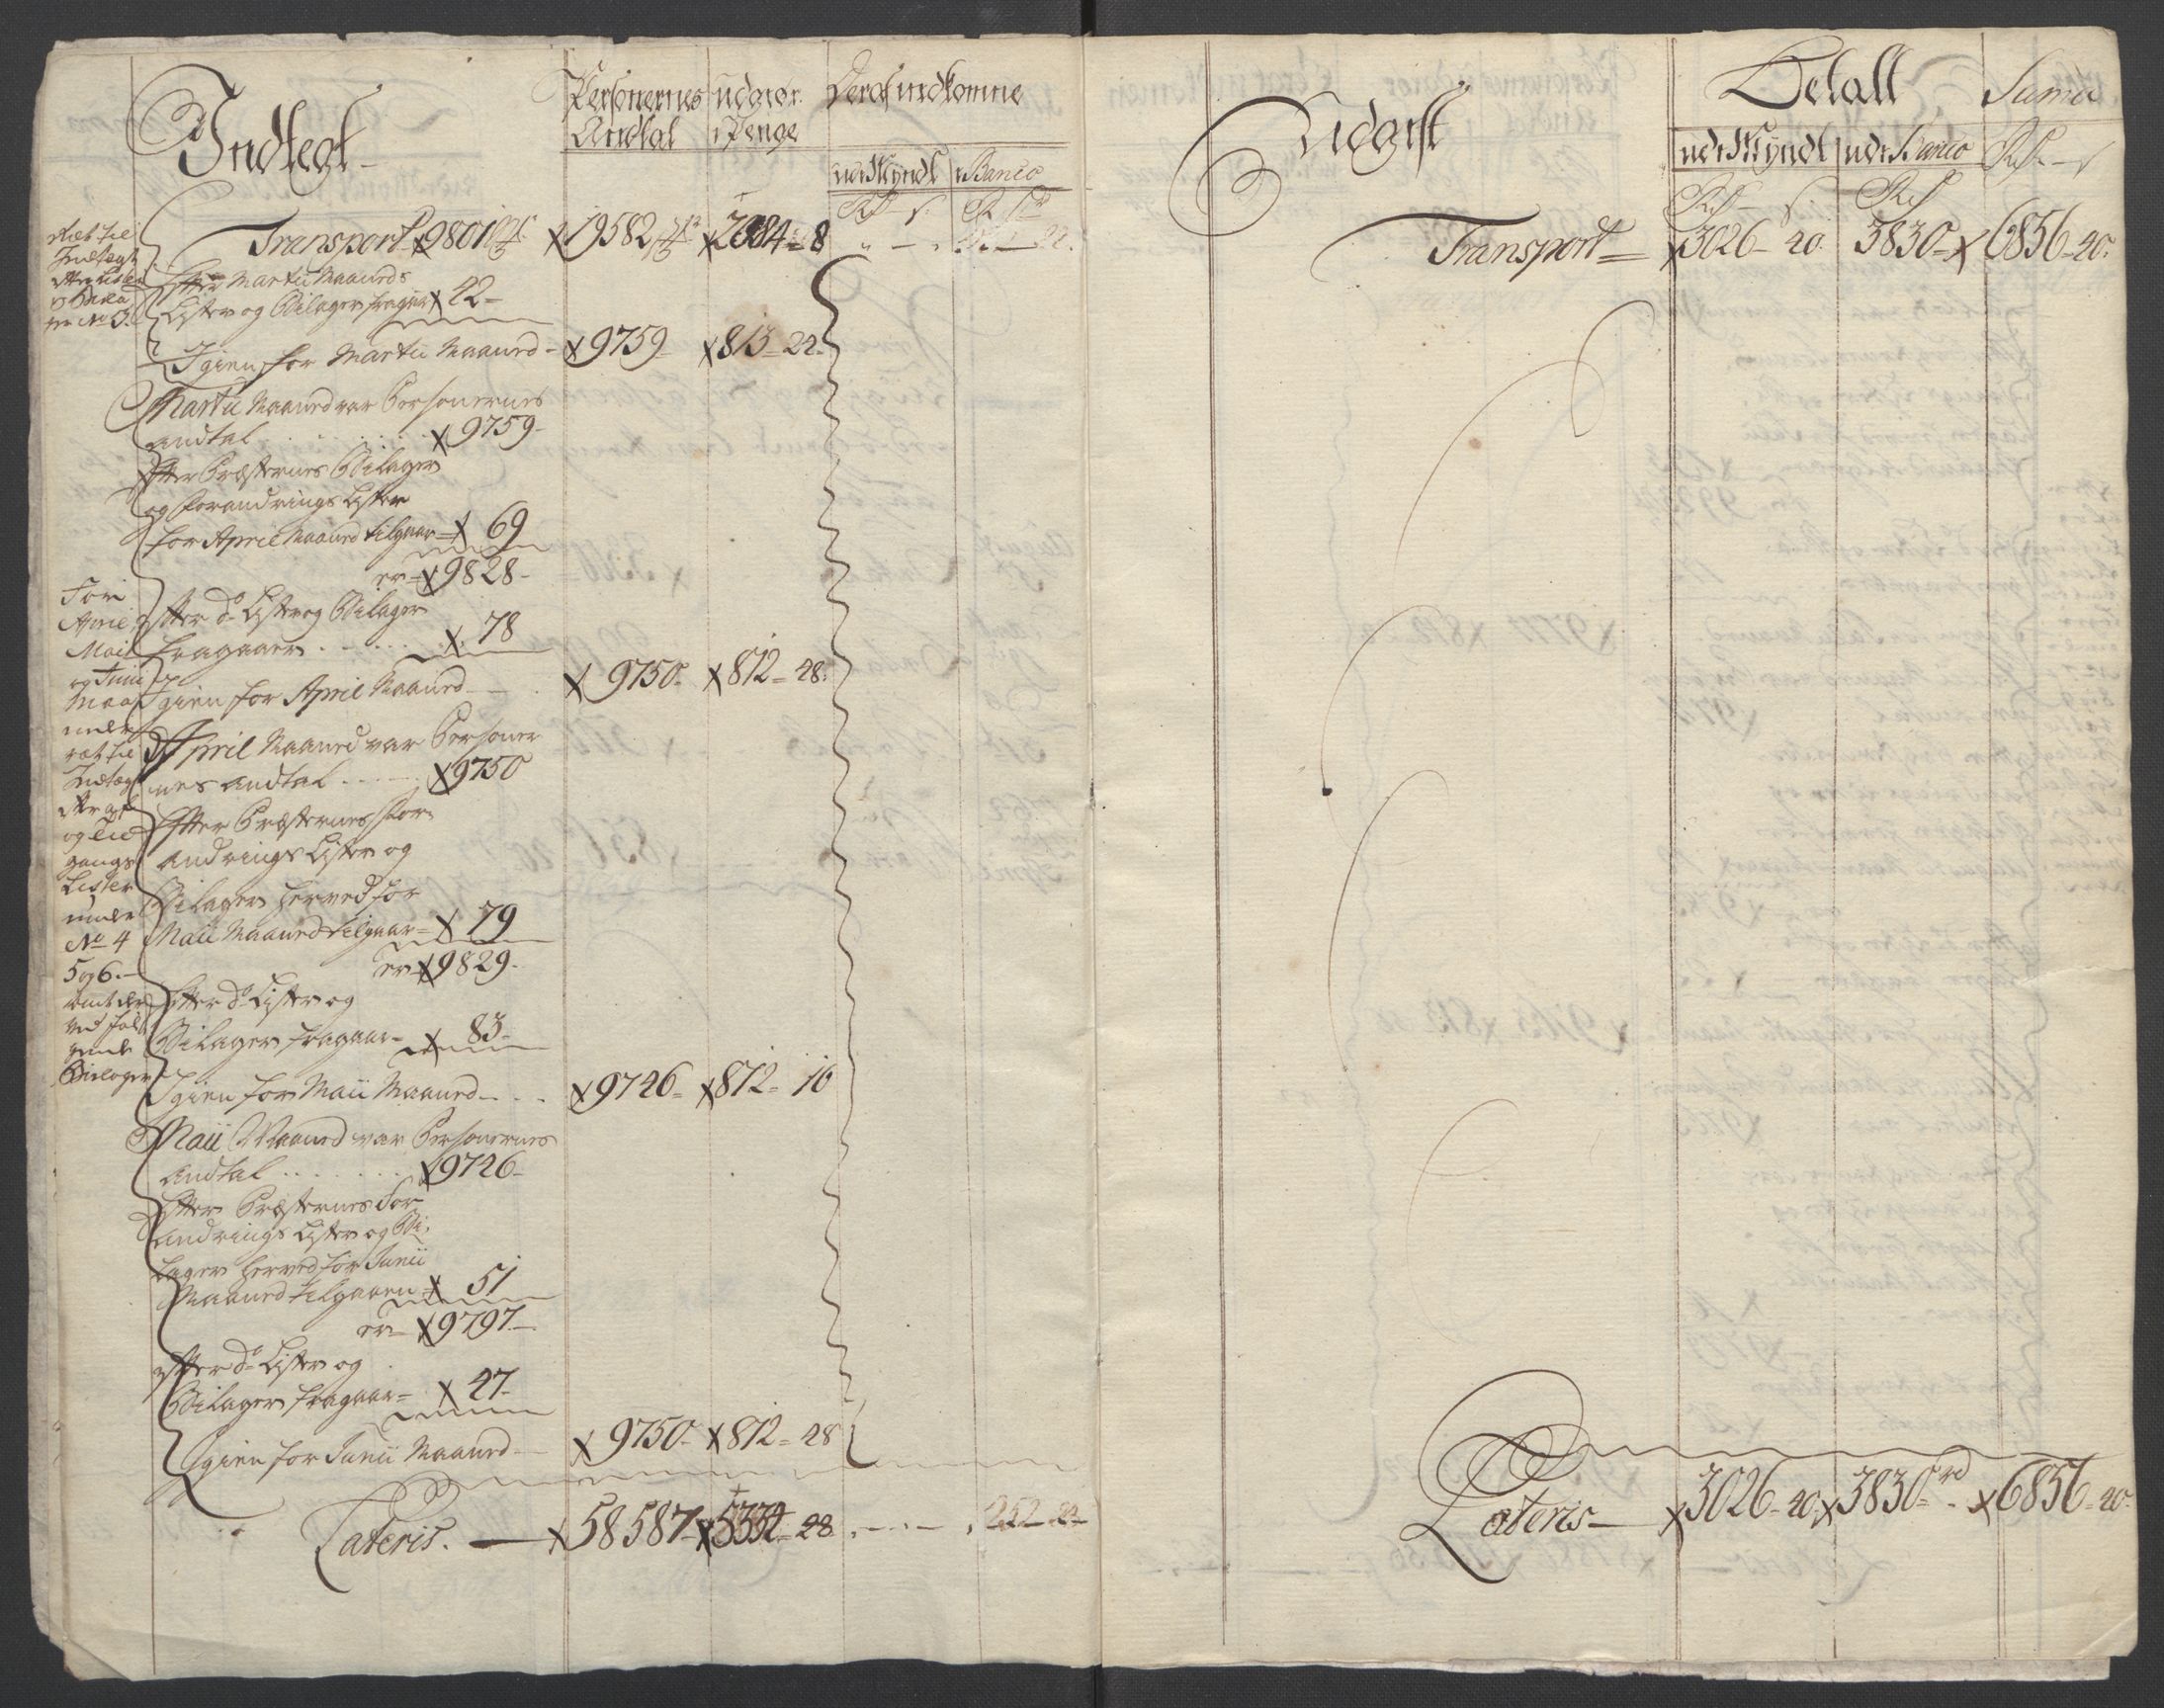 Indtegt
Personernes
Andtal
udgiør
i Penge
Deraf indkomne
udi Myndt
i Banco
Rd. s.
Transport x9801
x19582
x2084 = 8
Efter Martii Maaneds
Lister og Bilager fragaar x 42 =
Igien for Martii Maaned - x9759 - x813 - 24.
Martii Maaned var Personernes
andtal . . . . . . x9759 -
Efter Præsternes Bilager
og Forandrings Lister
for April Maaned tilgaar = x 69
er = x9828 -
Efter do Lister og Bilager
fragaaer . . . . x. 78
Igien for April Maaned - - . x 9750 - x812 - 48.
April Maaned var Personer
nes andtal . . . . x9750
Efter Præsternes For
andrings Lister og
Bilager herved for
Maii Maaned tilgaar = x 79
er x9829 -
Efter do Lister og
Bilager fragaar - x 83 -
Igien for Maii Maaned - . . x9746 - x812 - 16
Maii Maaned var Personernes
Andtal . . . . . . x9746 -
Efter Præsternes For
andrings Lister og Bi,
lager herved for Junii
Maaned tilgaaer = x 51
er - x9797 -
Efter do Lister og
Bilager fragaar = x 47 -
Igien for Junii Maaned - - x9750 - x812 - 48
Lateris. — x58587 - x5334 - 48 . - . - . 252 - 24
Ret til
Indtægt
efter Lister
og Bila
ger No 3.
For
April
Maii
og Junii
Maa
neder
ret til
Indtægt
efter af
og Til
gangs
Lister
under
No 4
5 og 6. -
Bielager
Udgift
Detall
Suma
udi Myndt
udi Banco
Rd. - s
Rd. - s.
Rd
Transport = x3026 - 40. 3830 - x 6856 - 40.
Lateris - x3026 - 40. x3830 rd - . x6856 - 40.